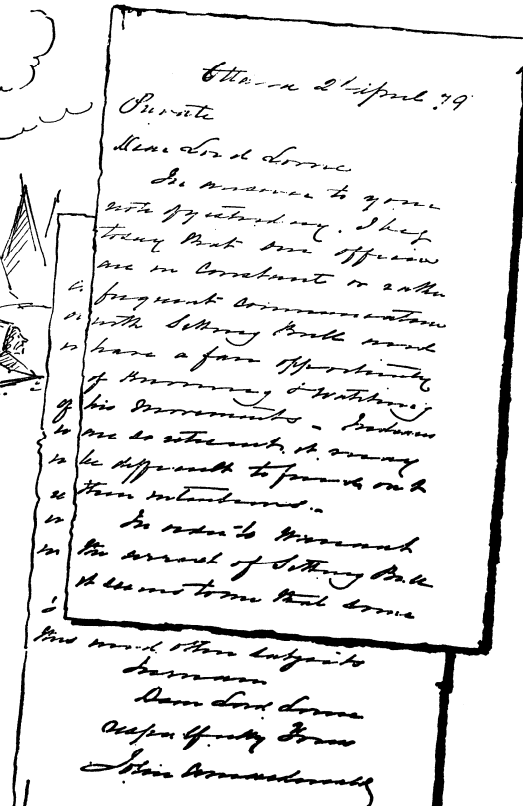 Ottawa 2d April 79
Private
Dear Lord Lorne
In answer to your
note of yesterday. I beg
to say that our officers
are in constant or rather
frequent communication
with Sitting Bull and
have a fair opportunity
of knowing & watching
his movements - Indians
are so reticent, it may
be difficult to find out
their intentions.-
In order to warrant
the arrest of Sitting Bull
it seems to me that some
this and other subjects
I remain
Dear Lord Lorne
respectfully Yours
John A Macdonald